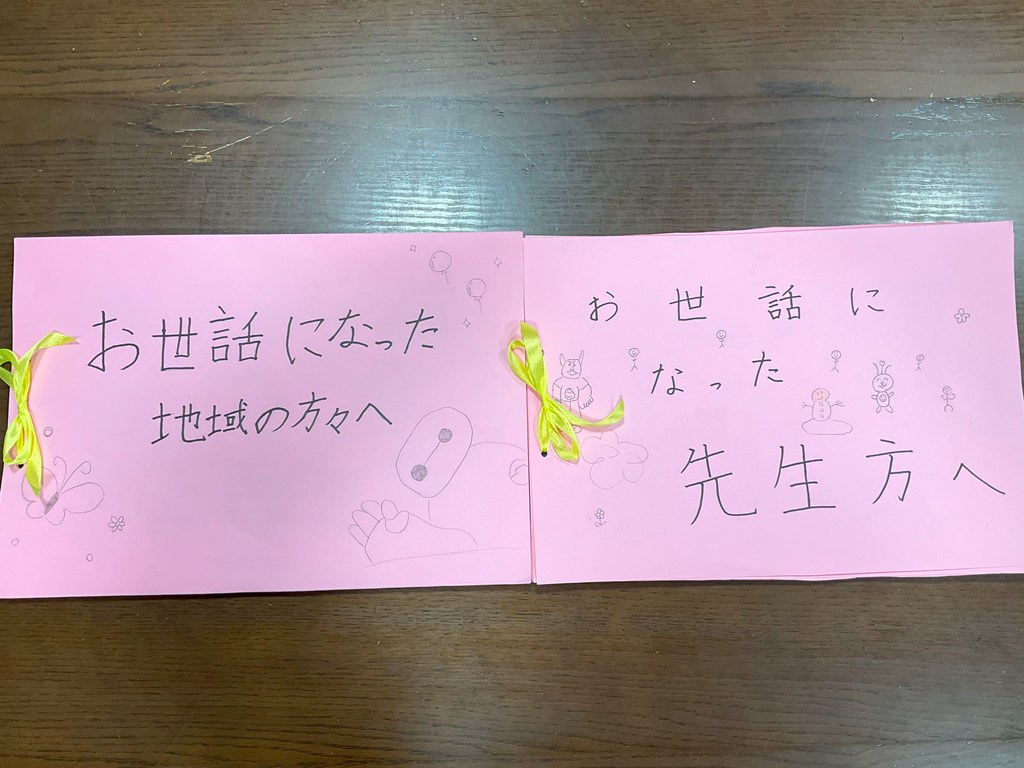 お世話になった
地域の方々へ
お世話に
なった
先生方へ